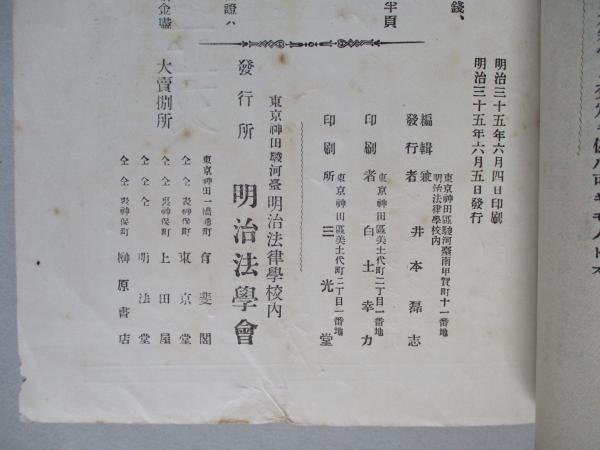 錢、
半頁
證ハ
金壜
明治三十五年六月四日印刷
明治三十五年六月五日發行
東京神田區駿河臺南甲賀町十一番地
明治法律學校內
編輯兼
發行者
井本磊志
東京神田區美土代町二丁目一番地
印刷者
白土幸力
東京神田區美土代町二丁目一番地
印刷所
三光堂
東京神田駿河臺明治法律學校內
發行所
明治法學會
大賣捌所
東京神田一橋通町
有斐閣
仝仝裏神保町
東京堂
仝仝裏神保町
上田屋
仝仝仝
明法堂
仝仝表神保町
榊原書店